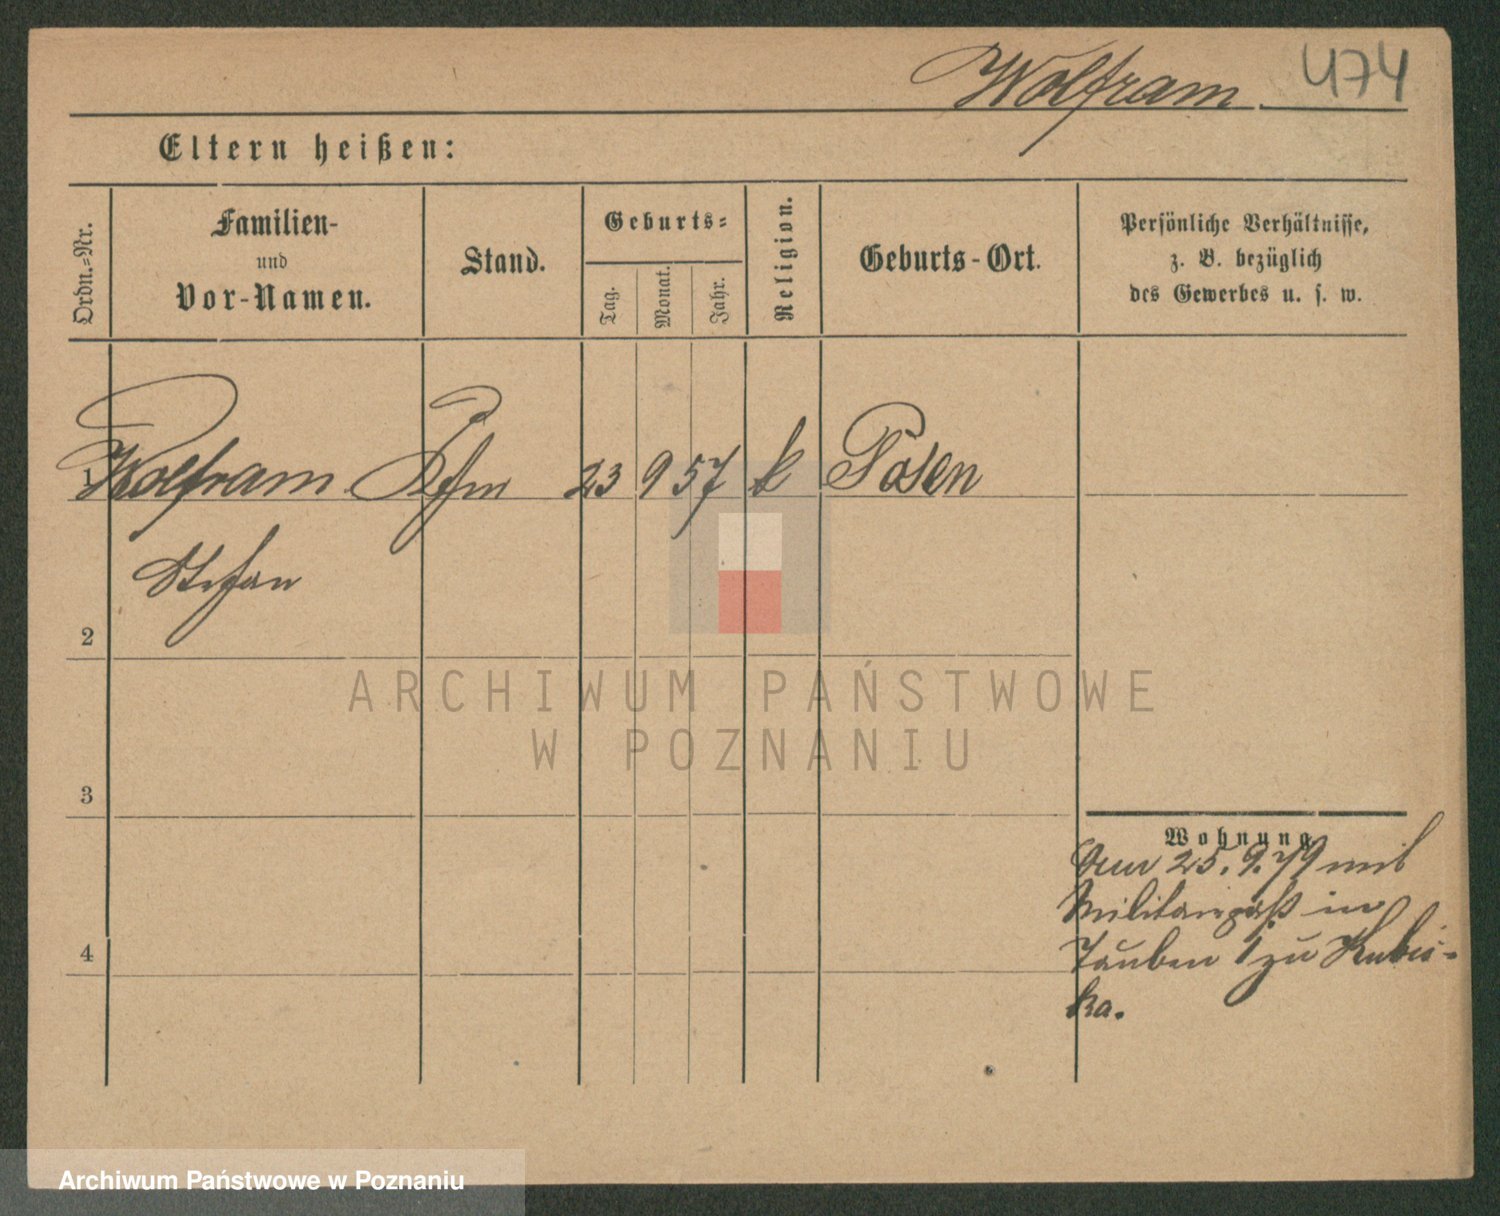 Wolfram.
474
Eltern heißen:
Ordn.-Nr.
Familien-
und
Vor-Namen.
Stand.
Geburts-
Tag.
Monat.
Jahr.
Religion.
Geburts-Ort.
Persönliche Verhältnisse,
z. B. bezüglich
des Gewerbes u. s. w.
1 Wolfram 23 9 57 k Posen
Stefan
2
3
4
Wohnung
Am 25.9.79 mit
Militairpaß in
Tauben 1 zu Kubis-
ka.
ARCHIWUM PAŃSTWOWE
W POZNANIU
Archiwum Państwowe w Poznaniu